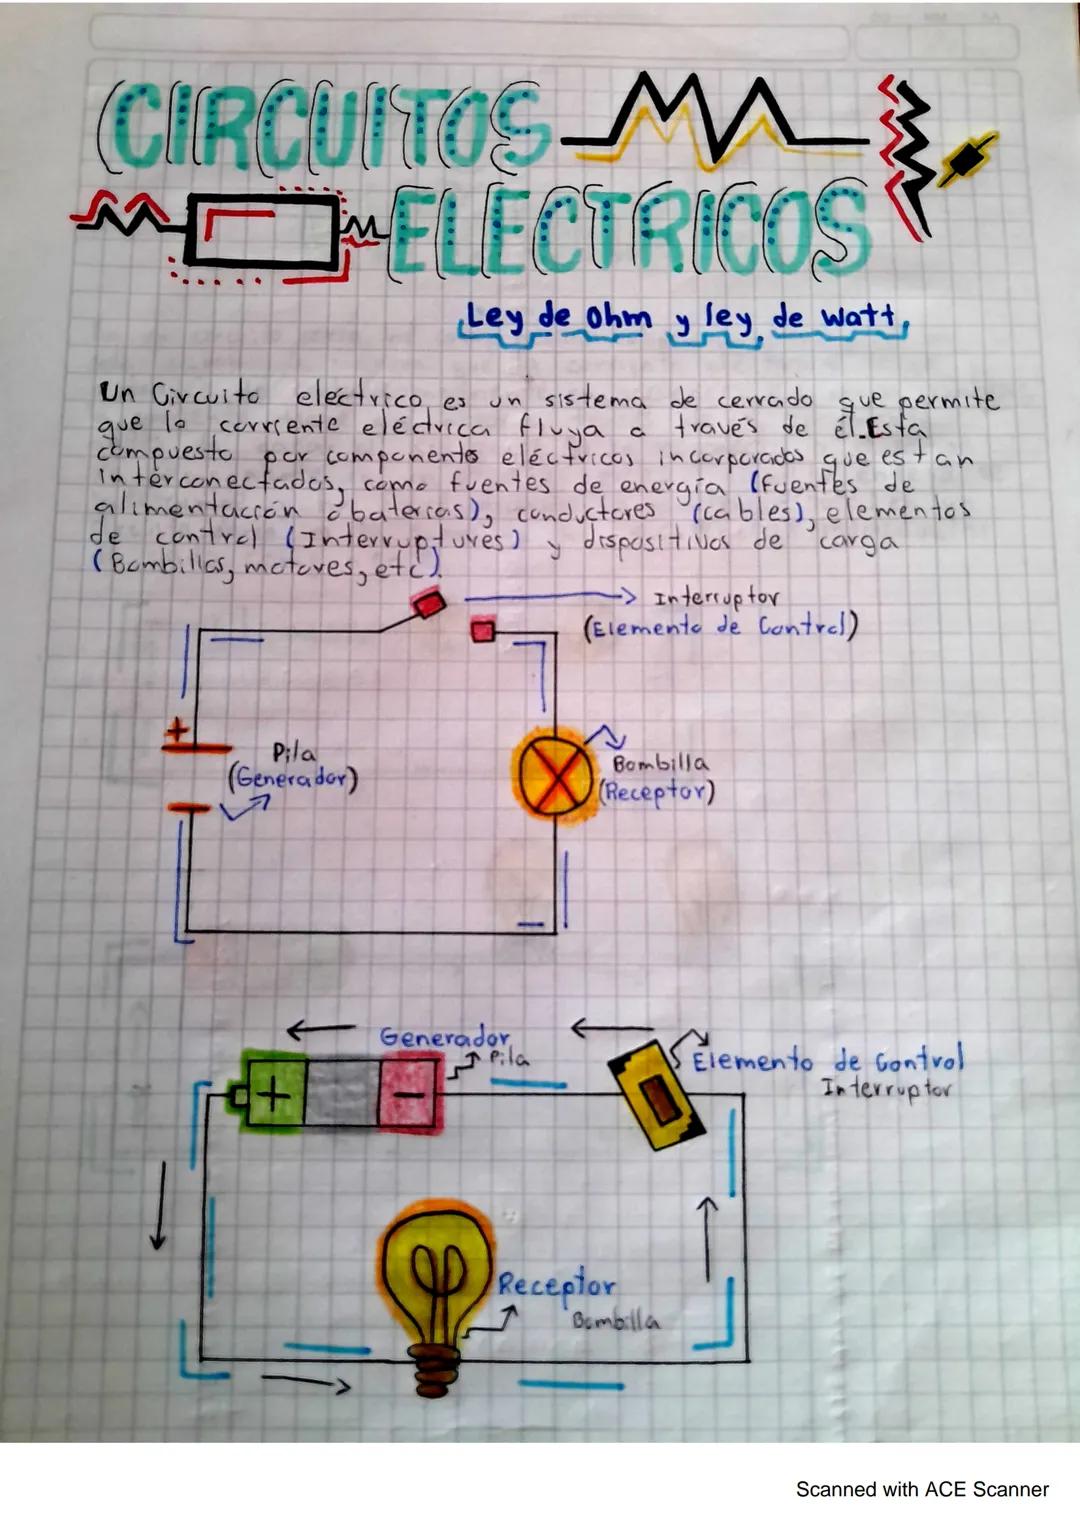 CIRCUITOS
ELECTRICOS
Ley de Ohm y ley de watt
Un Circuito eléctrico es un sistema de cerrado que permite
que la corriente eléctrica fluya a través de él. Esta
compuesto por componentes eléctricos incorporados que estan
interconectados, como fuentes de energía (fuentes de
alimentación o baterias), conductores (cables), elementos
de control (Interruptures) y dispositivos de carga
(Bombillas, motores, etc).
Interruptor
(Elemento de Control)
+
Pila
(Generador)
Bombilla
(Receptor)
Generador
Pila
Elemento de Control
Interruptor
+
-
Receptor
Bombilla
Scanned with ACE Scanner